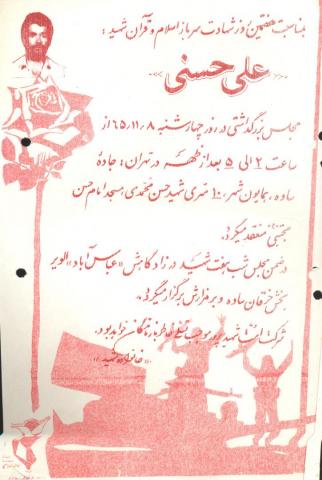 بمناسبت هفتمین روز شهادت سرباز اسلام و قرآن شهید:
علی حسنی
مجلس بزرگداشتی در روز چهارشنبه ۶۵،۱۱،۸ از
ساعت ۲ الی ۵ بعد از ظهر در تهران: جاده
ساوه، همایون شهر، ۱۰ متری شهید حسن محمدی، مسجد امام حسن
مجتبی منعقد میگردد.
در ضمن مجلس شب هفت شهید در زادگاهش «عباس آباد» الویر
بخش خرقان ساوه و بر مزارش برگزار میگردد.
شرکت امت شهید پرور موجب تسلی خاطر بازماندگان خواهد بود.
«خانواده شهید»